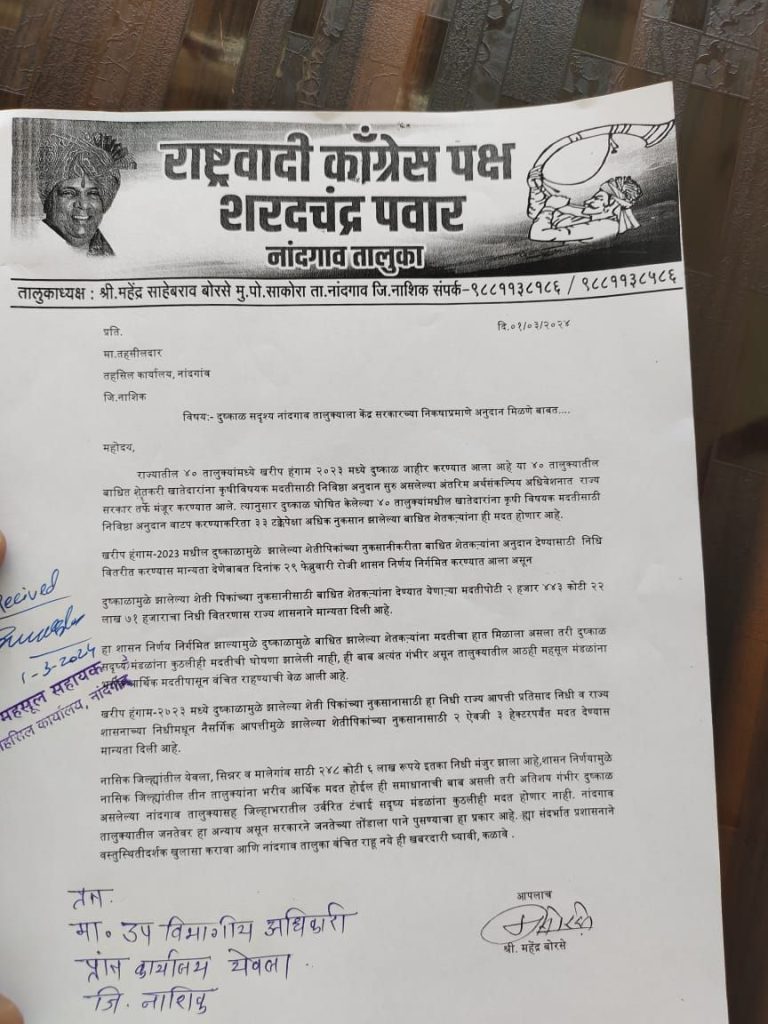 राष्ट्रवादी काँग्रेस पक्ष
शरदचंद्र पवार
नांदगाव तालुका
तालुकाध्यक्ष : श्री.महेंद्र साहेबराव बोरसे मु.पो.साकोरा ता.नांदगाव जि.नाशिक संपर्क-९८८११३८१८६ / ९८८११३८५८६
प्रति.
दि.०१/०३/२०२४
मा.तहसीलदार
तहसिल कार्यालय, नांदगांव
जि.नाशिक
विषय:- दुष्काळ सदृश्य नांदगाव तालुक्याला केंद्र सरकारच्या निकषाप्रमाणे अनुदान मिळणे बाबत....
महोदय,
राज्यातील ४० तालुक्यांमध्ये खरीप हंगाम २०२३ मध्ये दुष्काळ जाहीर करण्यात आला आहे या ४० तालुक्यातील
बाधित शेतकरी खातेदारांना कृषीविषयक मदतीसाठी निविष्ठा अनुदान सुरु असलेल्या अंतरिम अर्थसंकल्पिय अधिवेशनात राज्य
सरकार तर्फे मंजूर करण्यात आले. त्यानुसार दुष्काळ घोषित केलेल्या ४० तालुक्यांमधील खातेदारांना कृषी विषयक मदतीसाठी
निविष्ठा अनुदान वाटप करण्याकरिता ३३ टक्केपेक्षा अधिक नुकसान झालेल्या बाधित शेतकऱ्यांना ही मदत होणार आहे.
खरीप हंगाम-2023 मधील दुष्काळामुळे झालेल्या शेतीपिकांच्या नुकसानीकरीता बाधित शेतकऱ्यांना अनुदान देण्यासाठी निधि
वितरीत करण्यास मान्यता देणेबाबत दिनांक २९ फेब्रुवारी रोजी शासन निर्णय निर्गमित करण्यात आला असून
दुष्काळामुळे झालेल्या शेती पिकांच्या नुकसानीसाठी बाधित शेतकऱ्यांना देण्यात येणाऱ्या मदतीपोटी २ हजार ४४३ कोटी २२
लाख ७१ हजाराचा निधी वितरणास राज्य शासनाने मान्यता दिली आहे.
हा शासन निर्णय निर्गमित झाल्यामुळे दुष्काळामुळे बाधित झालेल्या शेतकऱ्यांना मदतीचा हात मिळाला असला तरी दुष्काळ
सदृष्य मंडळांना कुठलीही मदतीची घोषणा झालेली नाही, ही बाब अत्यंत गंभीर असून तालुक्यातील आठही महसूल मंडळांना
आर्थिक मदतीपासून वंचित राहण्याची वेळ आली आहे.
खरीप हंगाम-२०२३ मध्ये दुष्काळामुळे झालेल्या शेती पिकांच्या नुकसानासाठी हा निधी राज्य आपत्ती प्रतिसाद निधी व राज्य
शासनाच्या निधीमधून नैसर्गिक आपत्तीमुळे झालेल्या शेतीपिकांच्या नुकसानासाठी २ ऐवजी ३ हेक्टरपर्यंत मदत देण्यास
मान्यता दिली आहे.
नासिक जिल्ह्यांतील येवला, सिन्नर व मालेगांव साठी २४८ कोटी ६ लाख रूपये इतका निधी मंजुर झाला आहे,शासन निर्णयामुळे
नासिक जिल्ह्यांतील तीन तालुक्यांना भरीव आर्थिक मदत होईल ही समाधानाची बाब असली तरी अतिशय गंभीर दुष्काळ
असलेल्या नांदगाव तालुक्यासह जिल्हाभरातील उर्वरित टंचाई सदृष्य मंडळांना कुठलीही मदत होणार नाही. नांदगाव
तालुक्यातील जनतेवर हा अन्याय असून सरकारने जनतेच्या तोंडाला पाने पुसण्याचा हा प्रकार आहे. ह्या संदर्भात प्रशासनाने
वस्तुस्थितीदर्शक खुलासा करावा आणि नांदगाव तालुका वंचित राहू नये ही खबरदारी घ्यावी, कळावे .
1-3-2024
महसूल सहायक
कार्यालय, नांदगांव
आपलाच
श्री. महेंद्र बोरसे
प्रत.
मा. उप विभागीय अधिकारी
प्रांत कार्यालय येवला.
जि. नाशिक